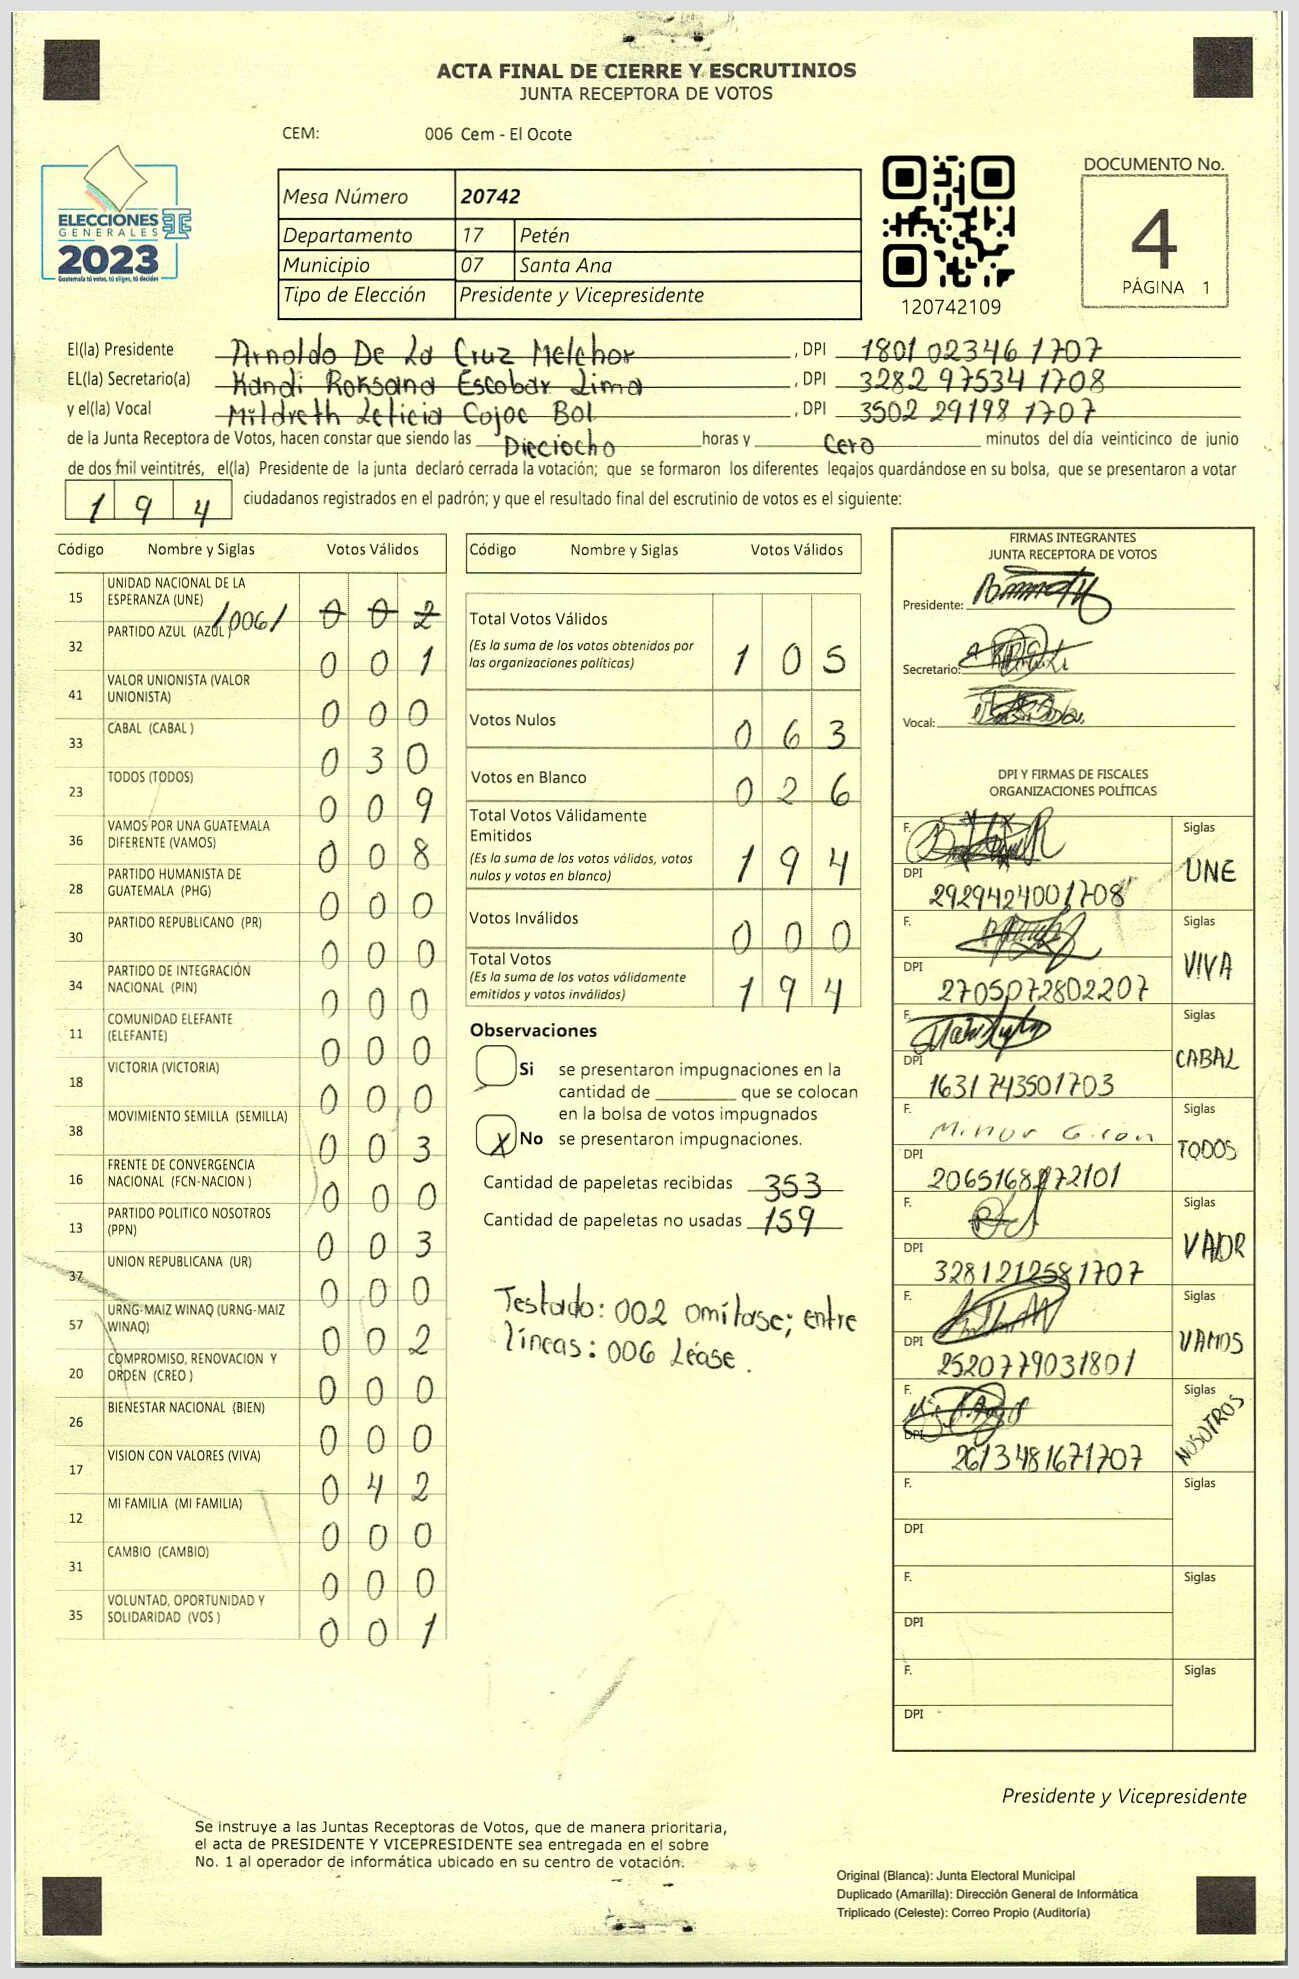 ACTA FINAL DE CIERRE Y ESCRUTINIOS
JUNTA RECEPTORA DE VOTOS
CEM: 006 Cem - El Ocote
ELECCIONES
GENERALES
2023
Guatemala tú votas, tú eliges, tú decides
Mesa Número 20742
Departamento 17 Petén
Municipio 07 Santa Ana
Tipo de Elección Presidente y Vicepresidente
120742109
DOCUMENTO No.
4
PÁGINA 1
El(la) Presidente Arnoldo De La Cruz Melchor , DPI 1801 02346 1707
EL(la) Secretario(a) Kandi Roksana Escobar Lima , DPI 3282 97534 1708
y el(la) Vocal Mildreth Leticia Cojoc Bol , DPI 3502 29198 1707
de la Junta Receptora de Votos, hacen constar que siendo las Dieciocho horas y Cero minutos del día veinticinco de junio
de dos mil veintitrés, el(la) Presidente de la junta declaró cerrada la votación; que se formaron los diferentes legajos guardándose en su bolsa, que se presentaron a votar
194 ciudadanos registrados en el padrón; y que el resultado final del escrutinio de votos es el siguiente:
Código Nombre y Siglas Votos Válidos
15 UNIDAD NACIONAL DE LA
ESPERANZA (UNE) /006/ 002
32 PARTIDO AZUL (AZUL) 001
41 VALOR UNIONISTA (VALOR
UNIONISTA) 000
33 CABAL (CABAL ) 030
23 TODOS (TODOS) 009
36 VAMOS POR UNA GUATEMALA
DIFERENTE (VAMOS) 008
28 PARTIDO HUMANISTA DE
GUATEMALA (PHG) 000
30 PARTIDO REPUBLICANO (PR) 000
34 PARTIDO DE INTEGRACIÓN
NACIONAL (PIN) 000
11 COMUNIDAD ELEFANTE
(ELEFANTE) 000
18 VICTORIA (VICTORIA) 000
38 MOVIMIENTO SEMILLA (SEMILLA) 003
16 FRENTE DE CONVERGENCIA
NACIONAL (FCN-NACION ) 000
13 PARTIDO POLITICO NOSOTROS
(PPN) 003
37 UNION REPUBLICANA (UR) 000
57 URNG-MAIZ WINAQ (URNG-MAIZ
WINAQ) 002
20 COMPROMISO, RENOVACION Y
ORDEN (CREO ) 000
26 BIENESTAR NACIONAL (BIEN) 000
17 VISION CON VALORES (VIVA) 042
12 MI FAMILIA (MI FAMILIA) 000
31 CAMBIO (CAMBIO) 000
35 VOLUNTAD, OPORTUNIDAD Y
SOLIDARIDAD (VOS ) 001
Código Nombre y Siglas Votos Válidos
Total Votos Válidos
(Es la suma de los votos obtenidos por
las organizaciones políticas) 105
Votos Nulos 063
Votos en Blanco 026
Total Votos Válidamente
Emitidos
(Es la suma de los votos válidos, votos
nulos y votos en blanco) 194
Votos Inválidos 000
Total Votos
(Es la suma de los votos válidamente
emitidos y votos inválidos) 194
Observaciones
Si se presentaron impugnaciones en la
cantidad de ________ que se colocan
en la bolsa de votos impugnados
X No se presentaron impugnaciones.
Cantidad de papeletas recibidas 353
Cantidad de papeletas no usadas 159
Testado: 002 omitase; entre
líneas: 006 Léase.
FIRMAS INTEGRANTES
JUNTA RECEPTORA DE VOTOS
Presidente:
Secretario:
Vocal:
DPI Y FIRMAS DE FISCALES
ORGANIZACIONES POLÍTICAS
F. Siglas
UNE
DPI 2929424001708
F. Siglas
VIVA
DPI 2705072802207
F. Siglas
CABAL
DPI 1631743501703
F. Minor Giron Siglas
TODOS
DPI
F. Siglas
VADR
DPI 3281212581707
F. Siglas
VAMOS
DPI 2520779031801
F. Siglas
NOSOTROS
DPI 2613481671707
F. Siglas
DPI
F. Siglas
DPI
F. Siglas
DPI
Presidente y Vicepresidente
Se instruye a las Juntas Receptoras de Votos, que de manera prioritaria,
el acta de PRESIDENTE Y VICEPRESIDENTE sea entregada en el sobre
No. 1 al operador de informática ubicado en su centro de votación.
Original (Blanca): Junta Electoral Municipal
Duplicado (Amarilla): Dirección General de Informática
Triplicado (Celeste): Correo Propio (Auditoría)